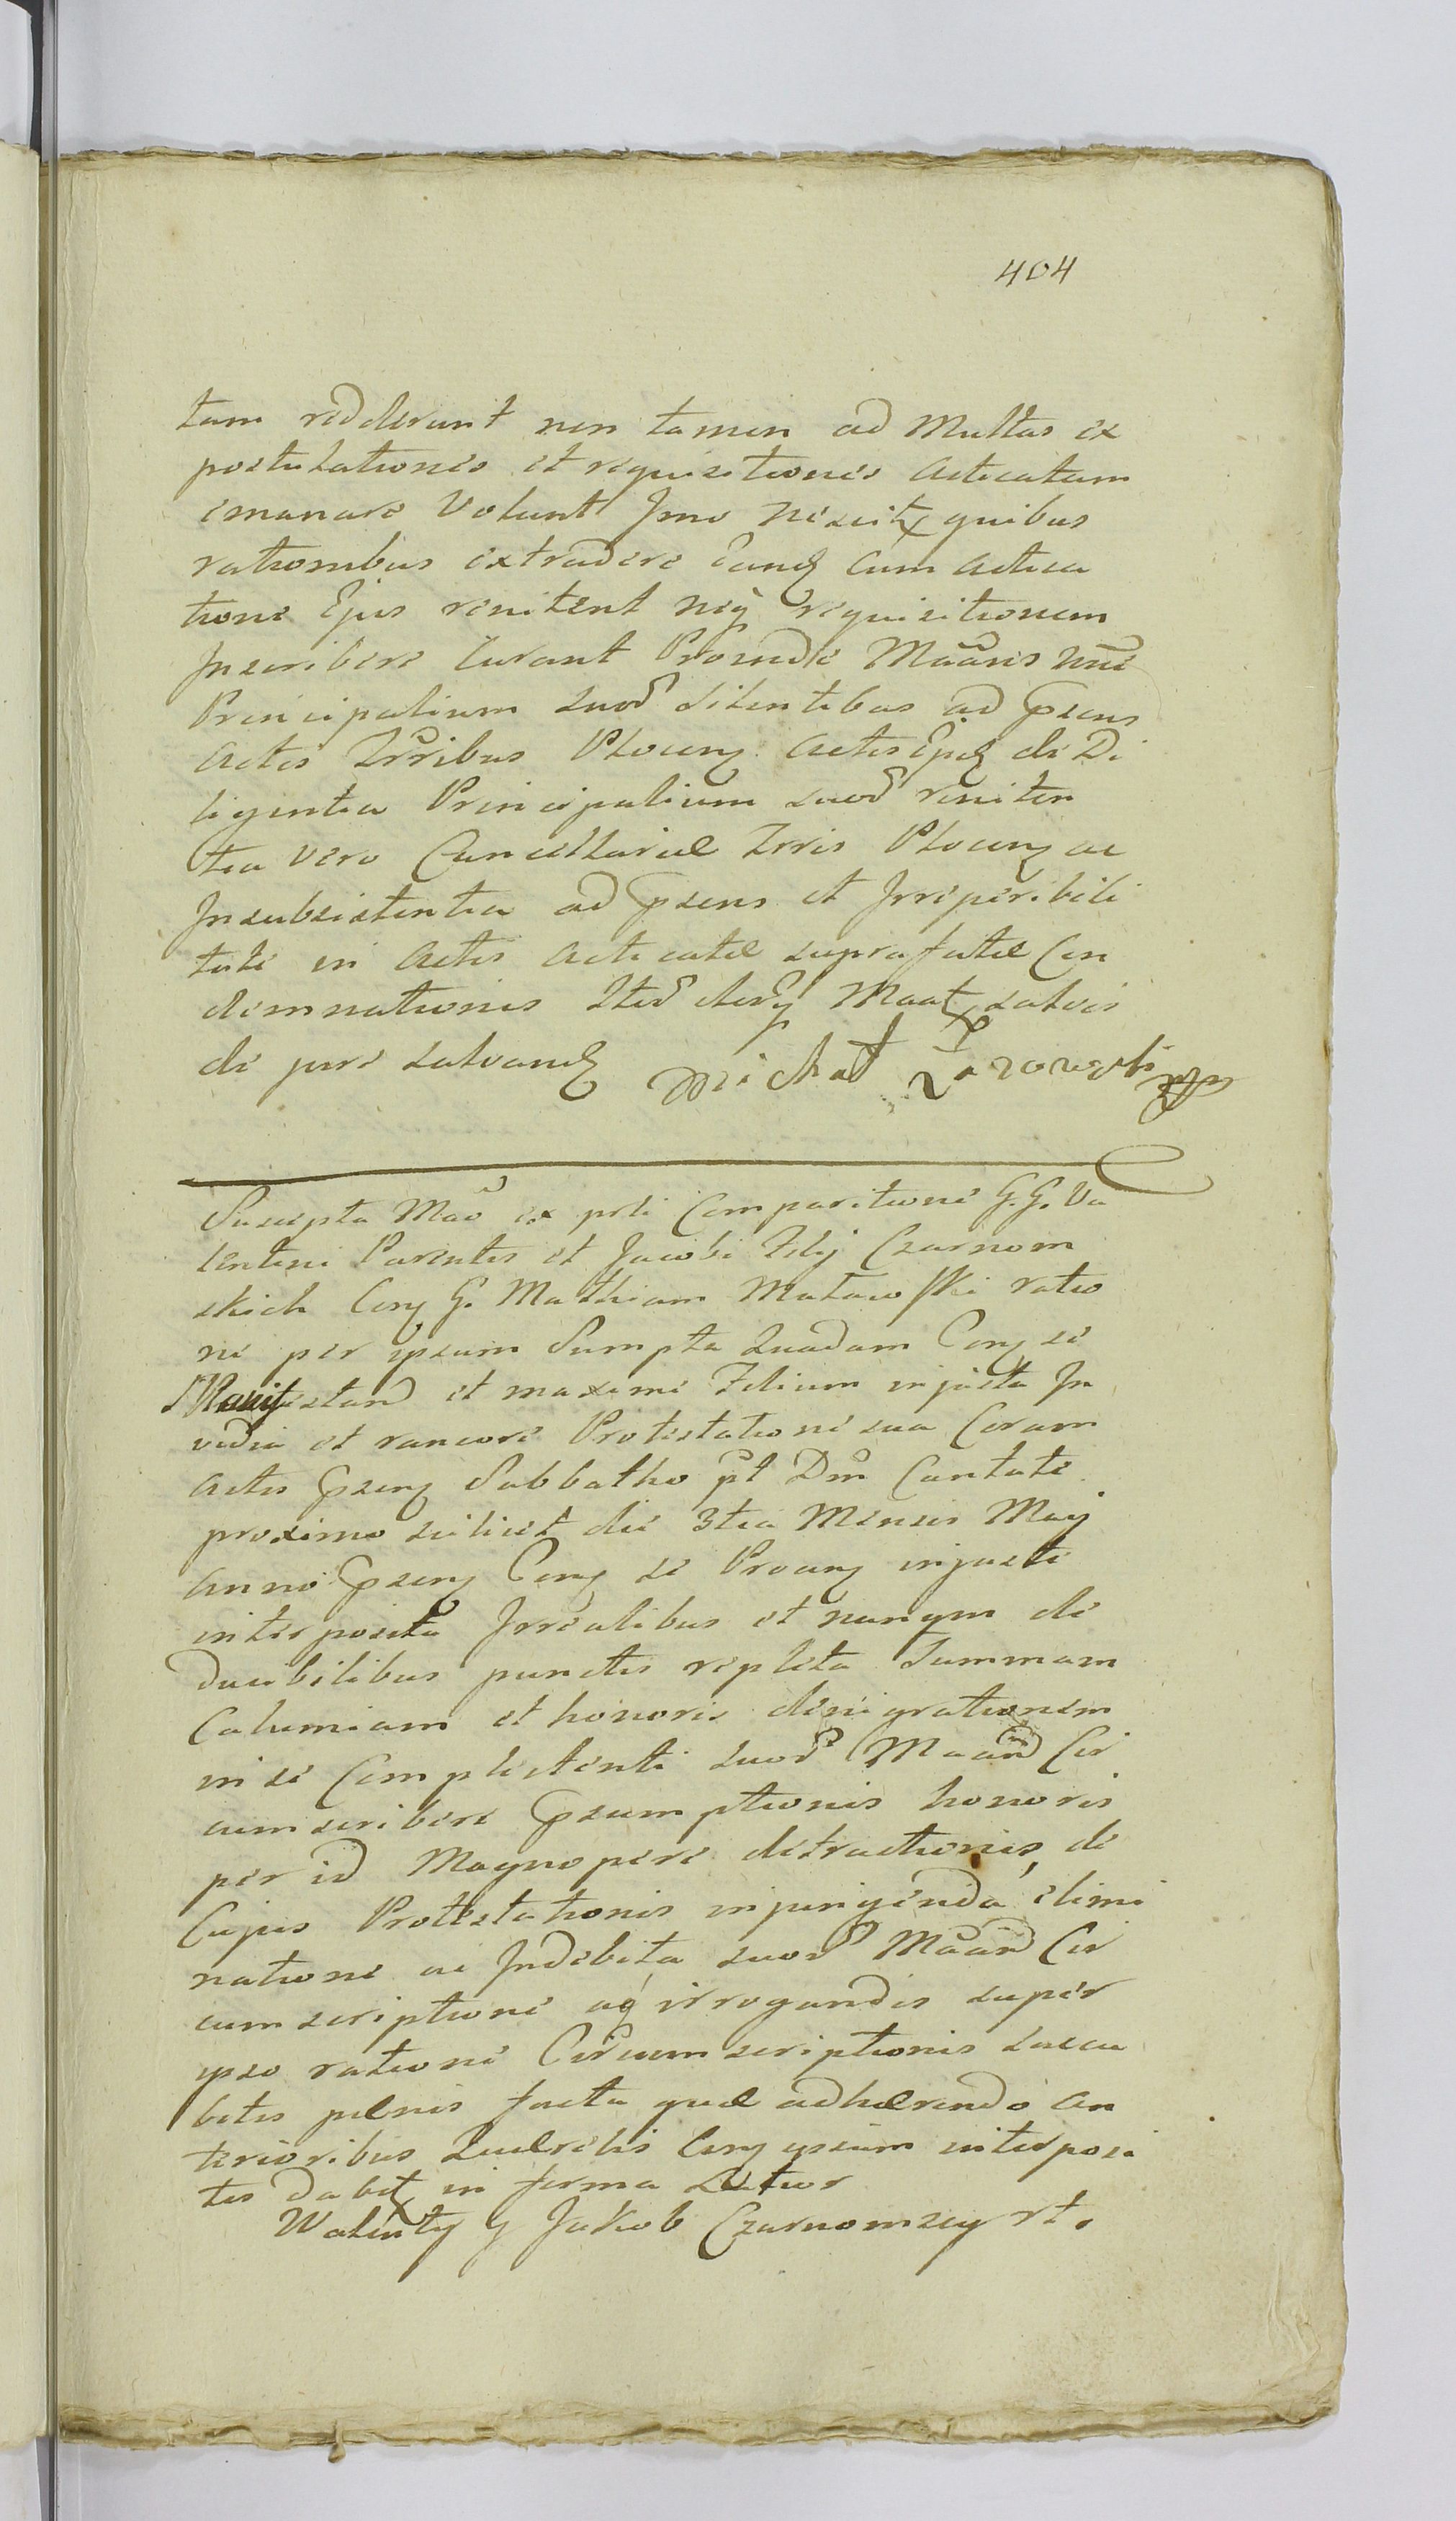 404
tam redderunt non tamen ad Multas ex
postulationes et requisitiones acticatam
emanare Volunt Imo nescit quibus
rationibus extradere eand cum actica
tione Ejus renitent neq requisitionem
Inscribere Curant Proinde Maãns nne
Principalium suor silentibus ad psens
actis Trribus Plocen actis Ejusd de Di
ligentia Principalium suor reniten
tia vero Cancellariæ Trris Plocen ac
Insubsistentia ad psens et Irreperibili
tate in actis acticatæ suprafatæ Con
demnationis Maat salvis
de jure salvand Michał
Suscepta Mao ex prti Comparitione G. G. Va
lentini Parentis et Jacobi Filij Czarnom
skich Con G. Mathiam Mataw ski ratio
ne per ipsum Sumpta quadam Con se
Manifestand et maxime Filium injusta In
vidia et rancore Protestatione sua Coram
actis psen Sabbatho pt Dm Cantate
proximo scilicet die 3tia Mensis Maij
anno psen Con se Procan injuste
interposita Irrealibus et nunqm de
ducibilibus punctis repleta Summam
Calumiam et honoris denigrationem
in se Complectenti suor Maãn Cir
cumscribere psumptionis honoris
per id Magnopere detractionis, de
Cujus Protestationis injungenda elimi
natione ac Indebita suor Maãn Cir
cumscriptione aq irrogandis super
ipso ratione Circumscriptionis succu
bitis pænis facta quæ adhærendo an
terioribus Quærelis Con ipsum interposi
tis dabit in forma Latior
Walenty y Jakob Czarnomscy rt.